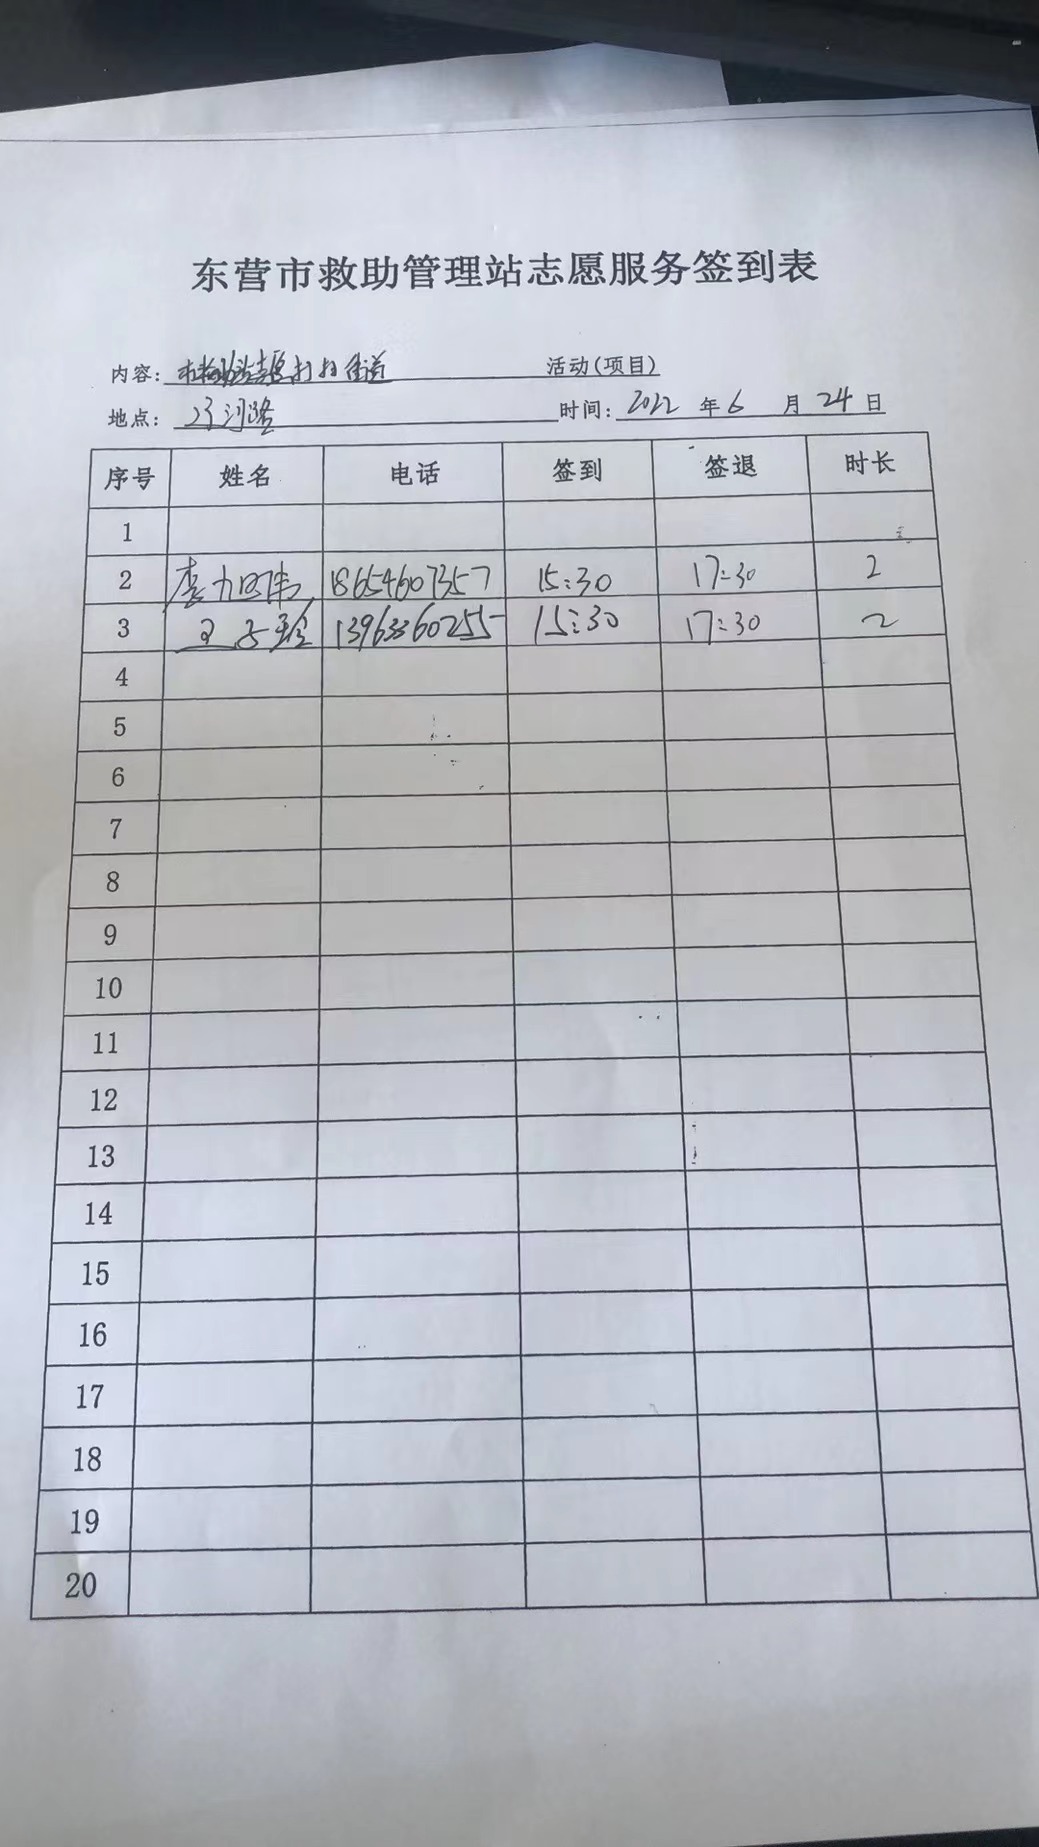 东营市救助管理站志愿服务签到表
内容: 打扫街道 活动(项目)
地点: 时间: 2022 年 6 月 24 日
序号 姓名 电话 签到 签退 时长
1
2 18654607357 15:30 17:30 2
3 王 13963360255 15:30 17:30 2
4
5
6
7
8
9
10
11
12
13
14
15
16
17
18
19
20